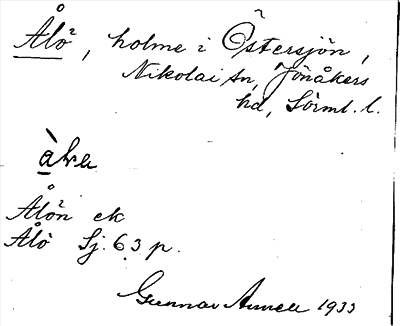 Ålö², holme i Östersjön,
Nikolai sn, Jönåkers
hd, Sörml. l.
Ålö²n ek
Ålö Sj. 63 p.
Gunnar 1933